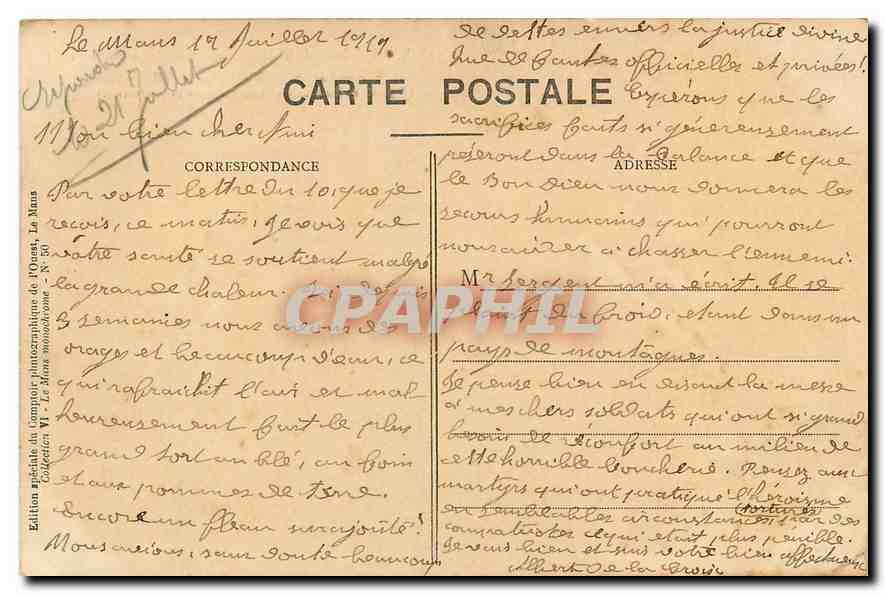 Le Mans 17 Juillet 1917.
Répondu
21 Juillet
CARTE POSTALE
Mon bien cher Ami
CORRESPONDANCE
Par votre lettre du 10, que je
reçois, ce matin, je vois que
votre santé se soutient malgré
la grande chaleur. Ici depuis
3 semaines nous avons des
orages et beaucoup d'eau, ce
qui rafraichit l'air et mal
heureusement fait le plus
grand tort au blé, au foin
et aux pommes de terre.
Encore un fléau surajouté!
Nous avions, sans doute beaucoup
de dettes envers la justice divine
que de fautes officielles et privées!
Espérons que les
sacrifices faits si généreusement
pèseront dans la balance et que
ADRESSE
le Bon Dieu nous donnera les
secours humains qui pourront
nous aider à chasser l'ennemi.
Mr Sergent m'a écrit. Il se
plaint du froid, étant dans un
pays de montagnes.
Je pense bien en disant la messe
à mes chers soldats qui ont si grand
besoin de réconfort au milieu de
cette horrible boucherie. Pensez aux
martyrs qui ont pratiqué l'héroïsme
en semblables circonstances, (torturés) par des
compatriotes ce qui était plus pénible.
Je vais bien et suis votre bien affectueux
Albert de la Croix
Edition spéciale du Comptoir photographique de l'Ouest, Le Mans
Collection VI - Le Mans monochrome - N° 50
CPAPHIL